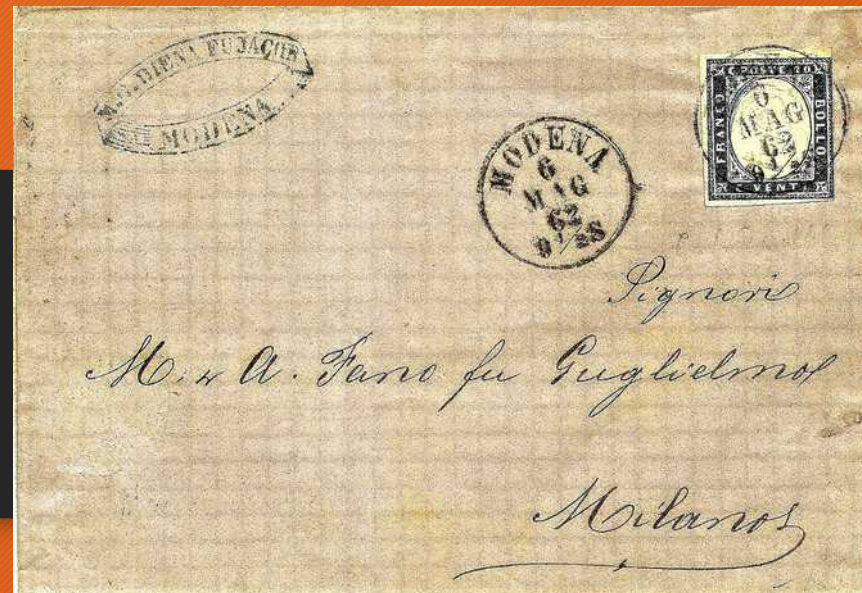 M. G. DIENA FU JACOB
MODENA
MODENA
6
MAG
62
9 1/2 S
C. POSTE 20
FRANCO
BOLLO
C. VENTI
6
MAG
62
9 1/2
Signori
M: e A. Fano fu Guglielmo
Milano